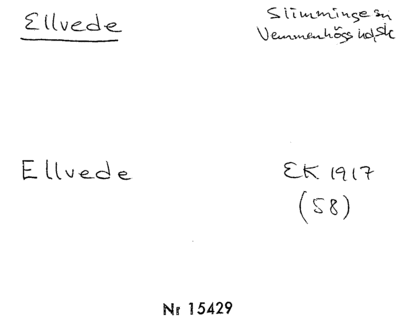 Ellvede
Slimminge sn
Vemmenhögs hd, Sk
Ellvede
EK 1917
(58)
Nr 15429